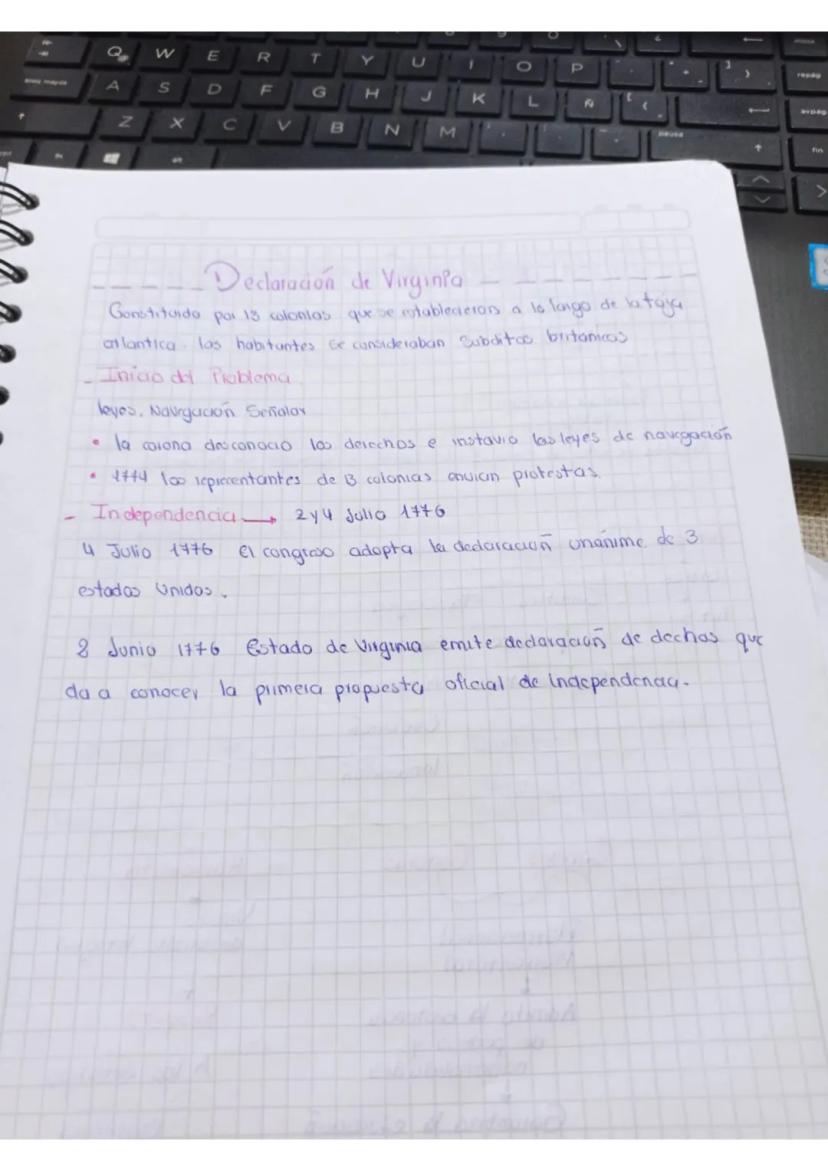 Q W E R T Y U I O P
A S D F G H J K L Ñ
Z X C V B N M
fin
Declaración de Virginia
Constituido por 13 colonias que se establecieron a lo largo de la faja
atlantica. los habitantes se consideraban Subditos britanicos
- Inicio del Problema
leyes. Navegación Señalar
• la corona desconocio los derechos e instauro las leyes de navegación
• 1774 los representantes de 13 colonias envian protestas.
- Independencia → 2 y 4 Julio 1776
4 Julio 1776 el congreso adopta la declaración unánime de 3
estados Unidos.
8 Junio 1776 Estado de Virginia emite declaración de dechos que
da a conocer la primera propuesta oficial de Independencia.